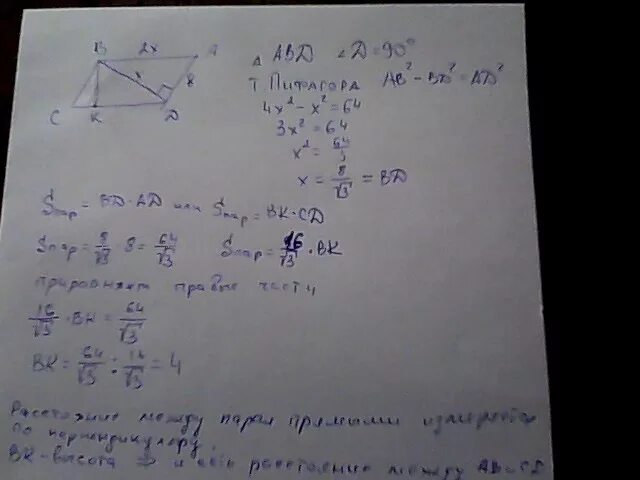 B 2x A
x 8
C K D
△ ABD ∠D=90°
Т Пифагора AB²-BD²=AD²
4x²-x²=64
3x²=64
x²=64/3
x=8/√3=BD
Sпар=BD·AD или Sпар=BK·CD
Sпар=8/√3·8=64/√3 Sпар=16/√3·BK
приравняем правые части
16/√3·BK=64/√3
BK=64/√3:16/√3=4
Расстояние между парал прямыми измеряется
по перпендикуляру,
BK-высота и есть расстояние между AB и CD